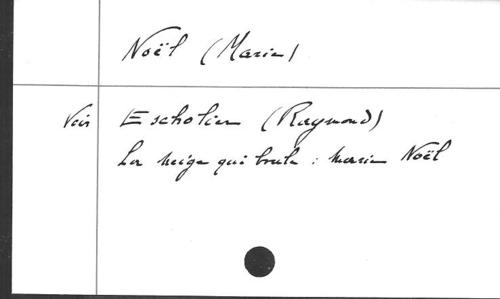 Noël (Marie)
Voir Escholier (Raymond)
La neige qui brule : Marie Noël